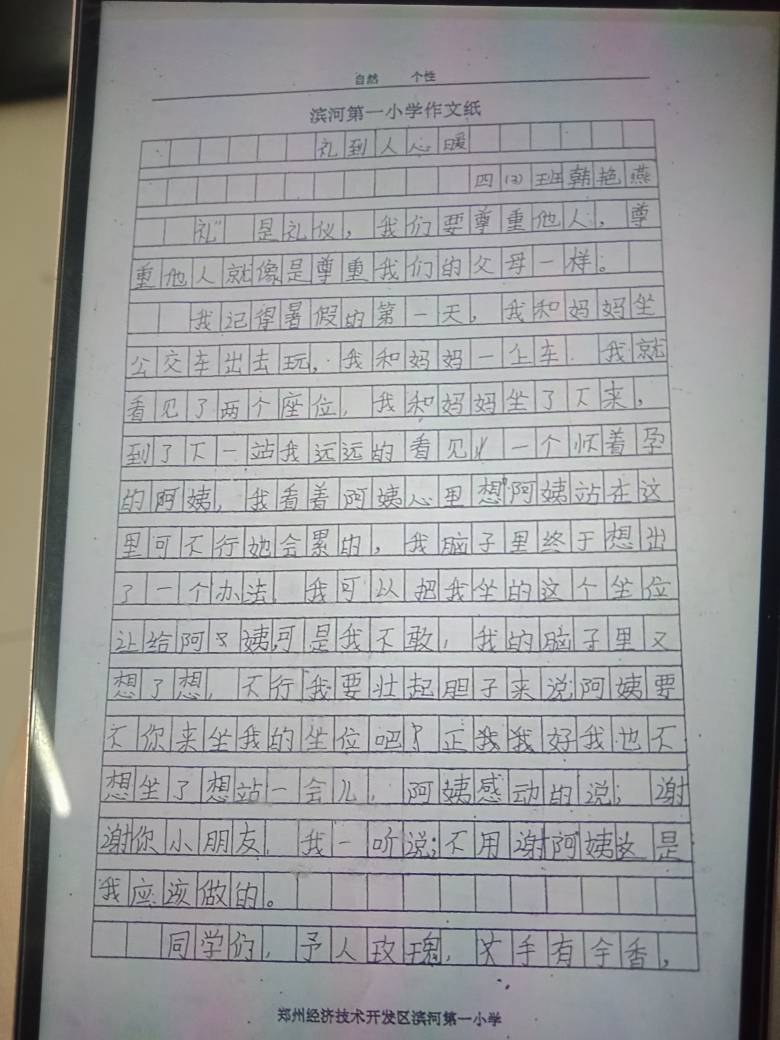 自然 个性
滨河第一小学作文纸
礼到人心暖
四(3)班韩艳燕
礼”是礼仪，我们要尊重他人，尊
重他人就像是尊重我们的父母一样。
我记得暑假的第一天，我和妈妈坐
公交车出去玩，我和妈妈一上车．我就
看见了两个座位，我和妈妈坐了下来，
到了下一站我远远的看见 一个怀着孕
的阿姨，我看着阿姨心里想“阿姨站在这
里可不行她会累的，我脑子里终于想出
了一个办法，我可以把我坐的这个坐位
让给阿 姨，可是我不敢，我的脑子里又
想了想，不行我要壮起胆子来说；阿姨要
不你来坐我的坐位吧？正 我好我也不
想坐了想站一会儿，阿姨感动的说；谢
谢你小朋友，我一听说；不用谢阿姨这是
我应该做的。
同学们，予人玫瑰， 手有余香，
郑州经济技术开发区滨河第一小学